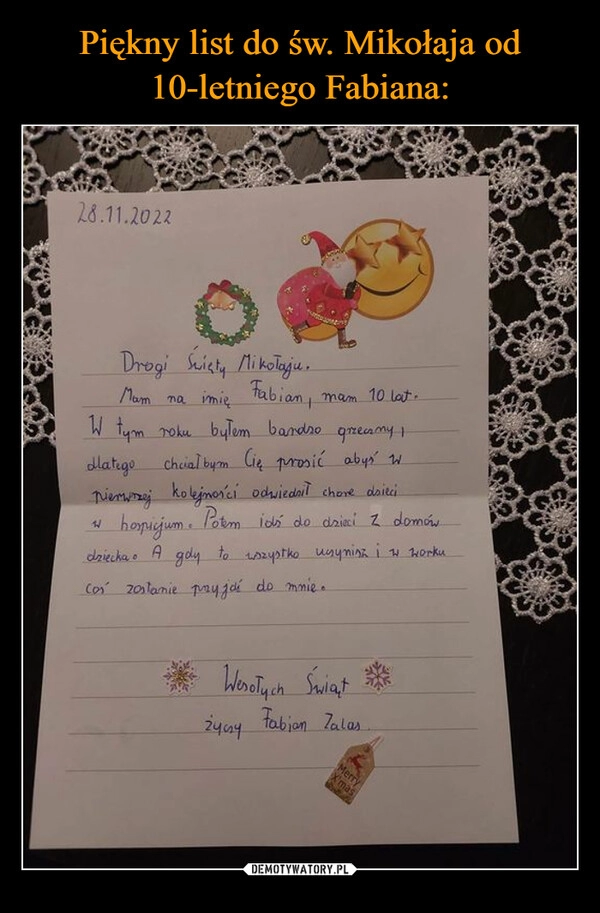 Piękny list do św. Mikołaja od
10-letniego Fabiana:
28.11.2022
Drogi Święty Mikołaju.
Mam na imię Fabian, mam 10 lat.
W tym roku byłem bardzo grzeczny,
dlatego chciałbym Cię prosić abyś w
pierwszej kolejności odwiedził chore dzieci
w hospicjum. Potem idź do dzieci z domów
dziecka. A gdy to wszystko uczynisz i w worku
coś zostanie przyjdź do mnie.
Wesołych Świąt
życzy Fabian Zalas.
Merry
X'mas
DEMOTYWATORY.PL